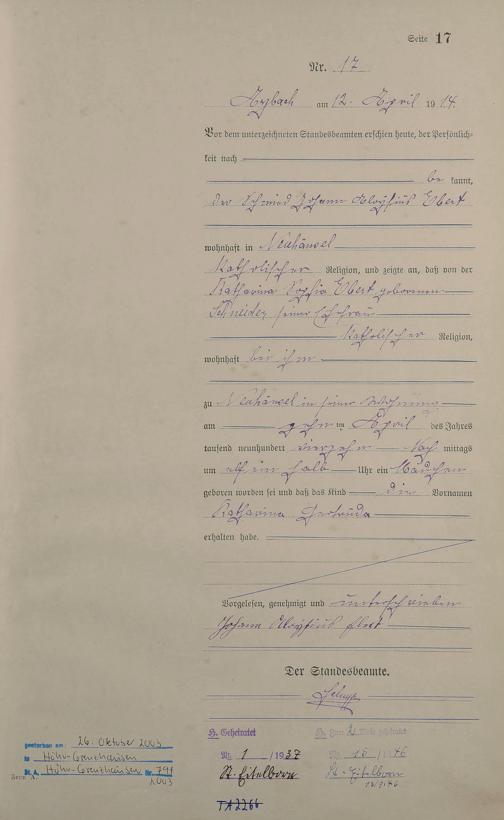 Seite 17
Nr. 17
Arzbach am 12. April 1914.
Vor dem unterzeichneten Standesbeamten erschien heute, der Persönlich-
keit nach
be kannt,
der Schmied Johann Aloysius Ebert
wohnhaft in Neuhäusel
Katholischer Religion, und zeigte an, daß von der
Katharina Sophia Ebert geborenen
Schneider seiner Ehefrau
Katholischer Religion,
wohnhaft bei ihm
zu Neuhäusel in seiner Wohnung
am zehnten April des Jahres
tausend neunhundert vierzehn Nach mittags
um elf ein halb Uhr ein Mädchen
geboren worden sei und daß das Kind die Vornamen
Katharina Gertruda
erhalten habe.
Vorgelesen, genehmigt und unterschrieben
Johann Aloysius Ebert
Der Standesbeamte.
gestorben am: 26. Oktober 2003
in Höhr-Grenzhausen
St. A. Höhr-Grenzhausen Nr. 791
2003
H. Geheiratet
Nr. 1 /1937
St. Eitelborn
Nr. 10 /1946
St. Eitelborn
TA2266